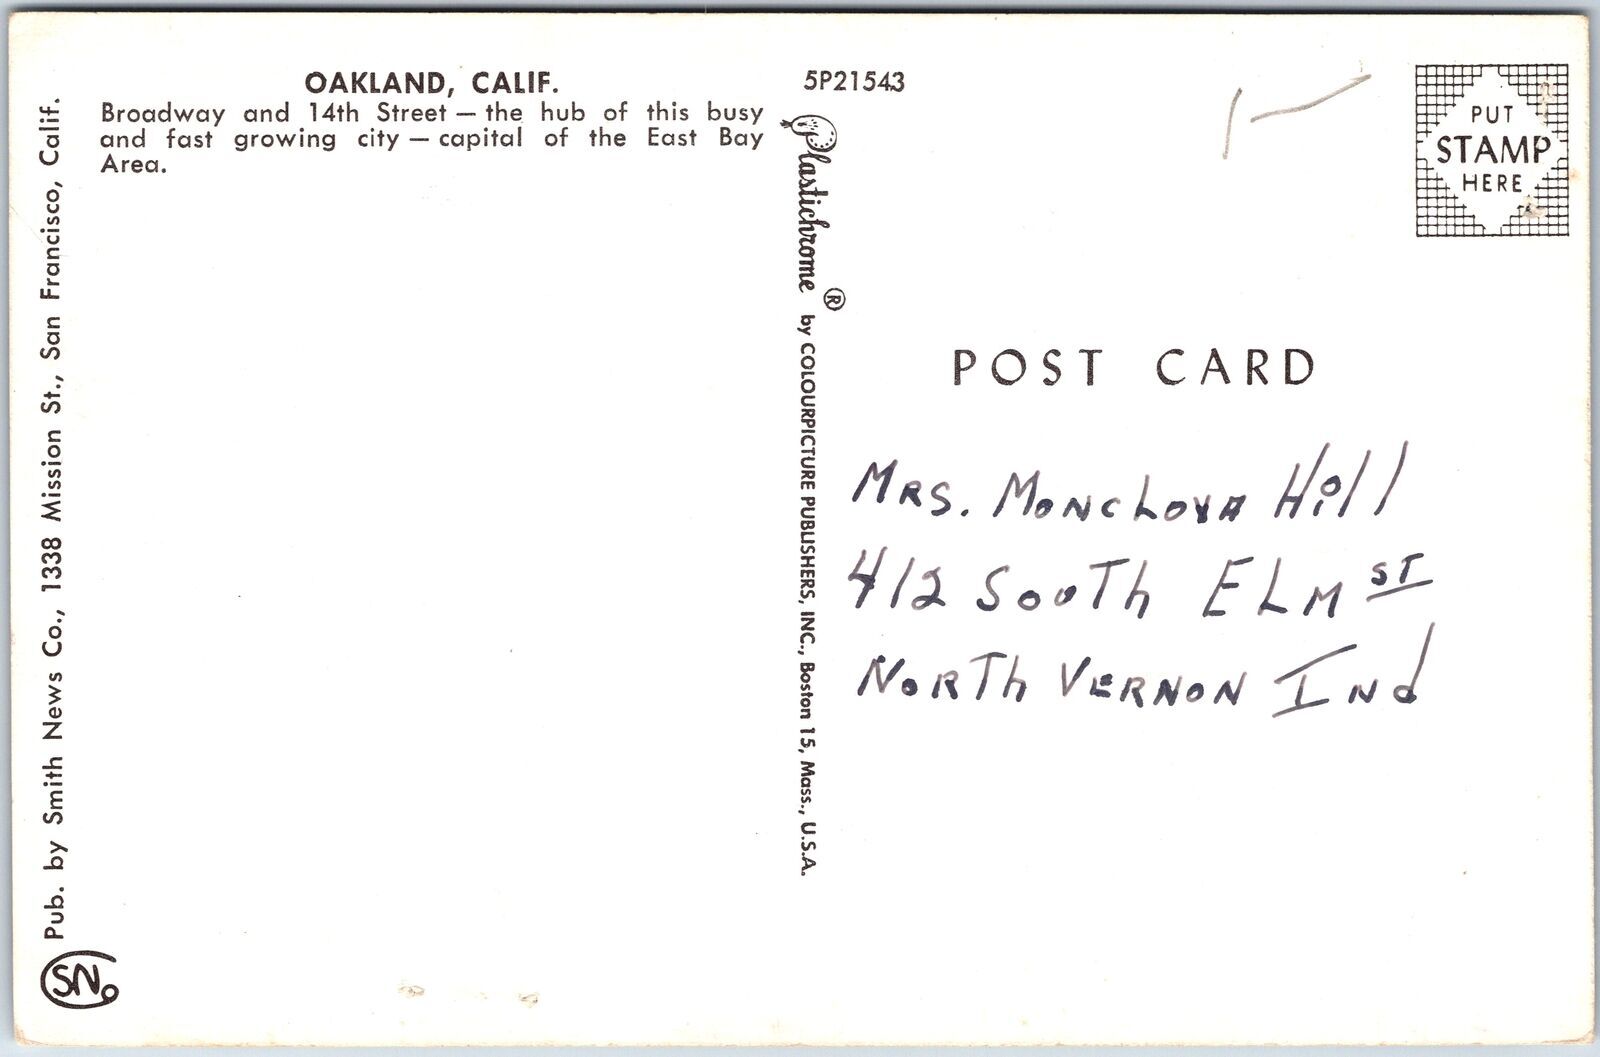 OAKLAND, CALIF.
Broadway and 14th Street — the hub of this busy
and fast growing city — capital of the East Bay
Area.
Pub. by Smith News Co., 1338 Mission St., San Francisco, Calif.
SNCo
5P21543
Plastichrome ® by COLOURPICTURE PUBLISHERS, INC., Boston 15, Mass., U.S.A.
PUT
STAMP
HERE
POST CARD
MRS. MONCLOVA Hill
412 SOUTH ELM ST
NORTH VERNON Ind